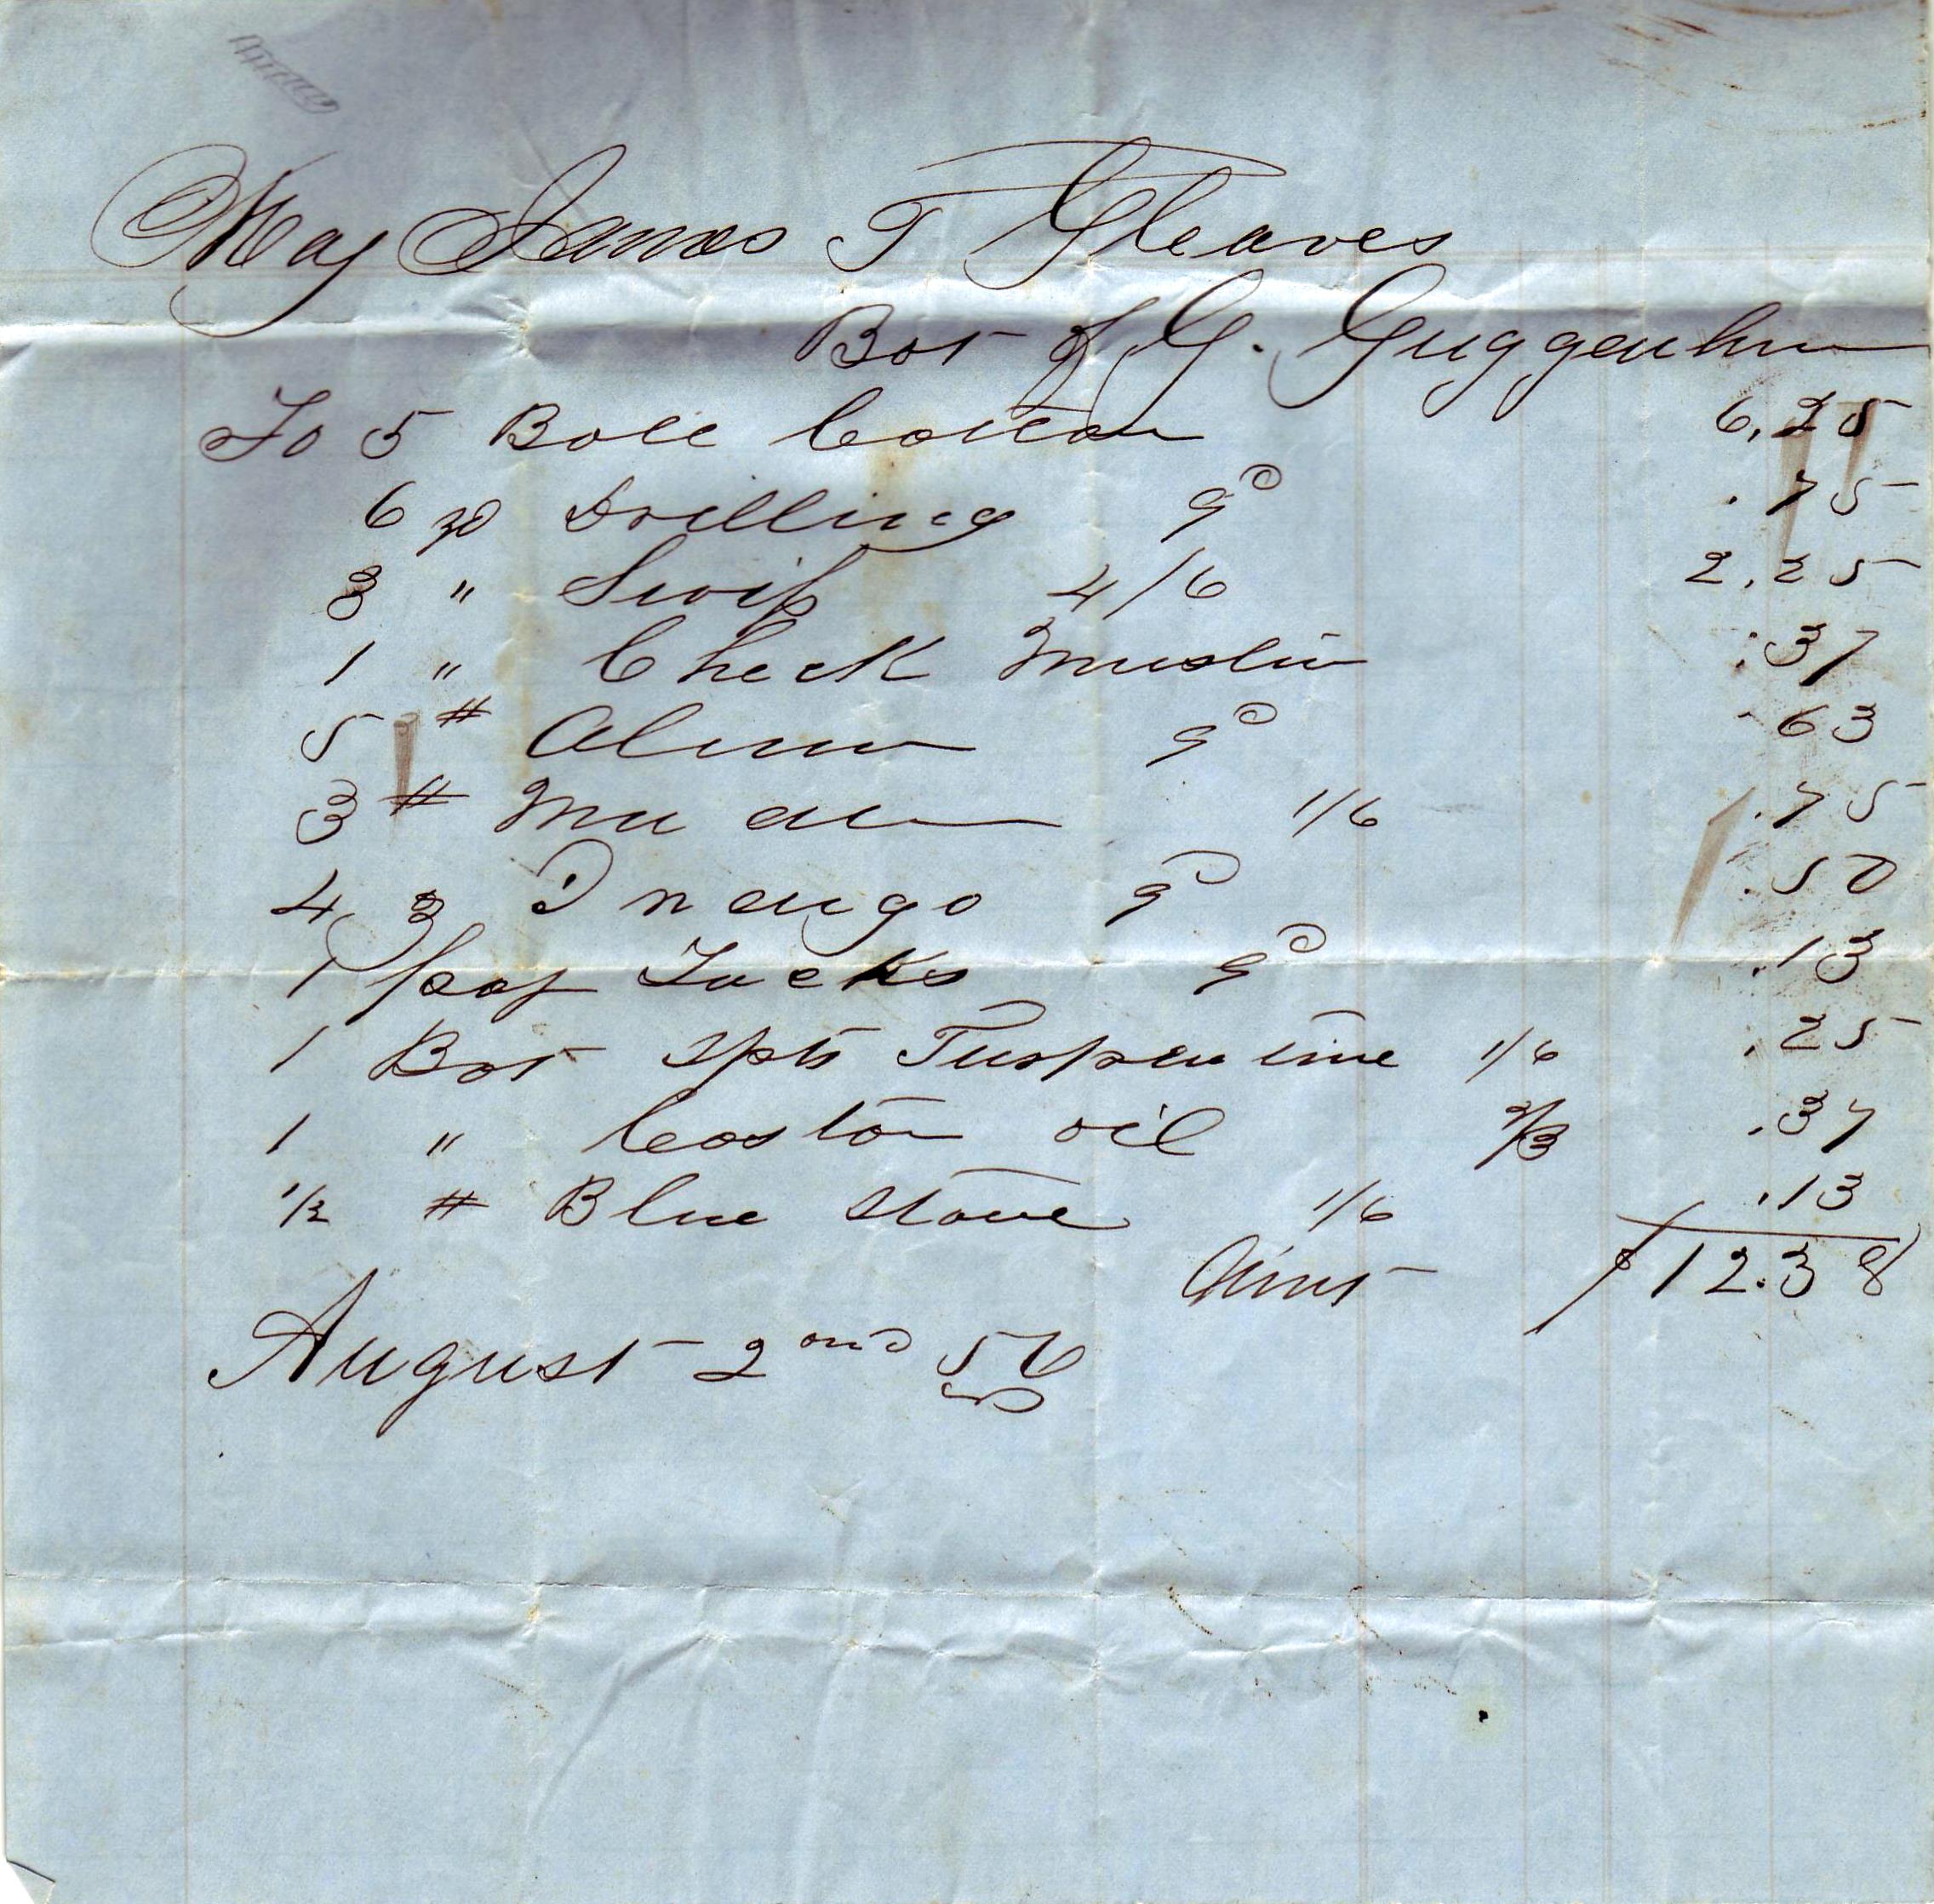 Maj James T Gleaves
Bot of G. Guggenhm
To 5 Bale Cotton 6.25
6 yd Drilling 9d .75
3 " Swiss 4/6 2.25
1 " Check Muslin .37
5 # Alum 9d .63
3 # 1/6 .75
4 ʒ 9d .50
1 pap Tacks 9d .13
1 Bot Spts Turpentine 1/6 .25
1 " Castor oil 2/3 .37
1/2 # Blue Stone 1/6 .13
Amt $12.38
August 2ond 56